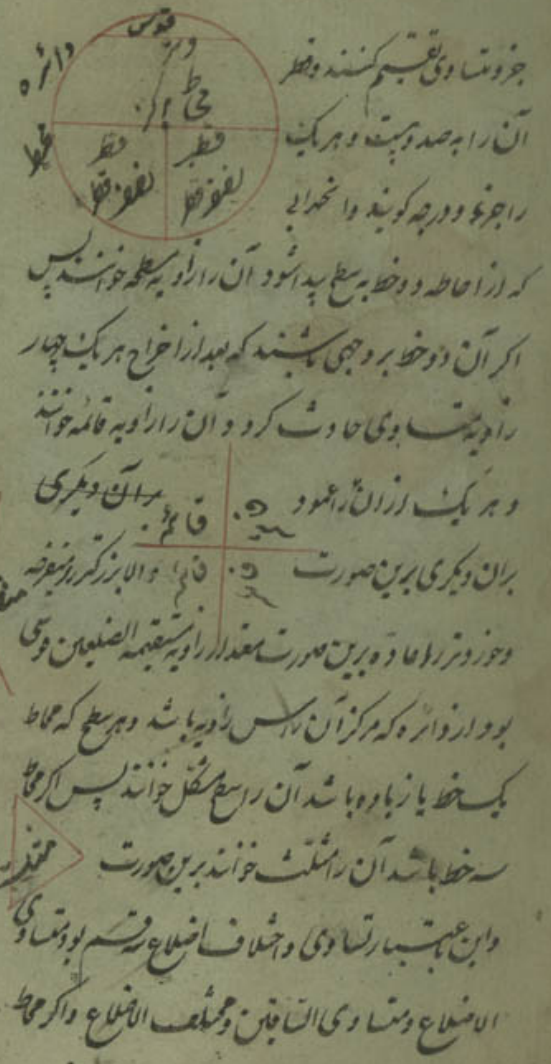 جزو متساوی تقسیم کنند و قطر
آن را به صد و بیست و هر یک
را جزء و درجه کویند و انحدابی
که از احاطه دو خط به سطح پیدا شود آن را زاویه مسطحه خوانند پس
اکر آن دو خط بر وجهی باشند که بعد از اخراج هر یک چهار
زاویه متساوی حادث کردد آن را زاویه قائمه خوانند
و هر یک ازان را عمود بران دیکری
بران دیکری برین صورت والا بزرکتر را منفرجه
وخوردتر را حاده برین صورت مقدار زاویه مستقیمة الضلعین قوسی
بود از دائره که مرکز آن راس زاویه باشد و هر سطح که محاط
یک خط یا زیاده باشد آن را سطح مشکّل خوانند پس اکر محاط
سه خط باشد آن را مثلّث خوانند برین صورت
واین باعتبار تساوی و اختلاف اضلاع سه قسم بود متساوی
الاضلاع و متساوی الساقین و مختلف الاضلاع و اکر محاط
قوس
وتر
دائره
محیط
مرکز
قطر
قطر
نصف قطر
نصف قطر
قائمه
قائمه
مثلث